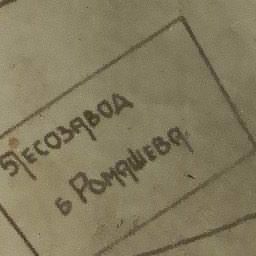 Лесозавод
б Ромашева